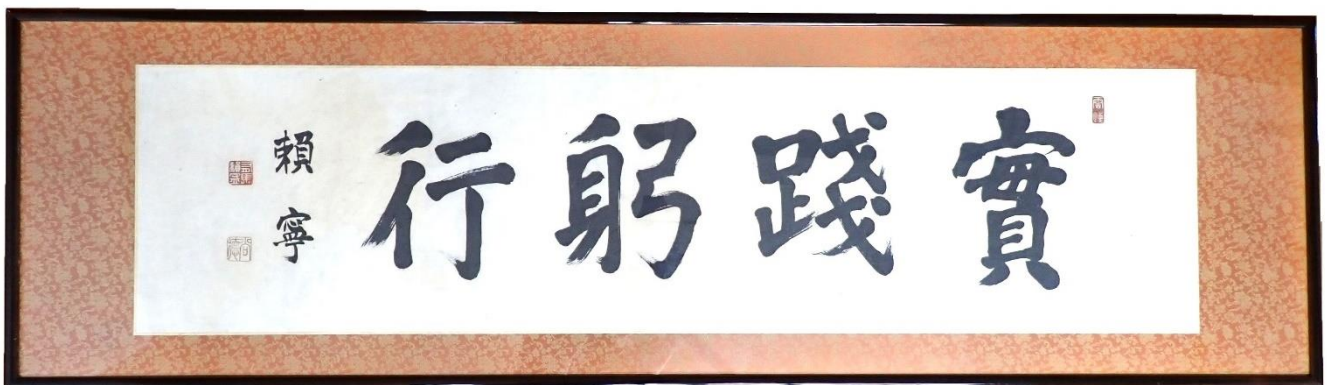 實踐躬行
賴寧